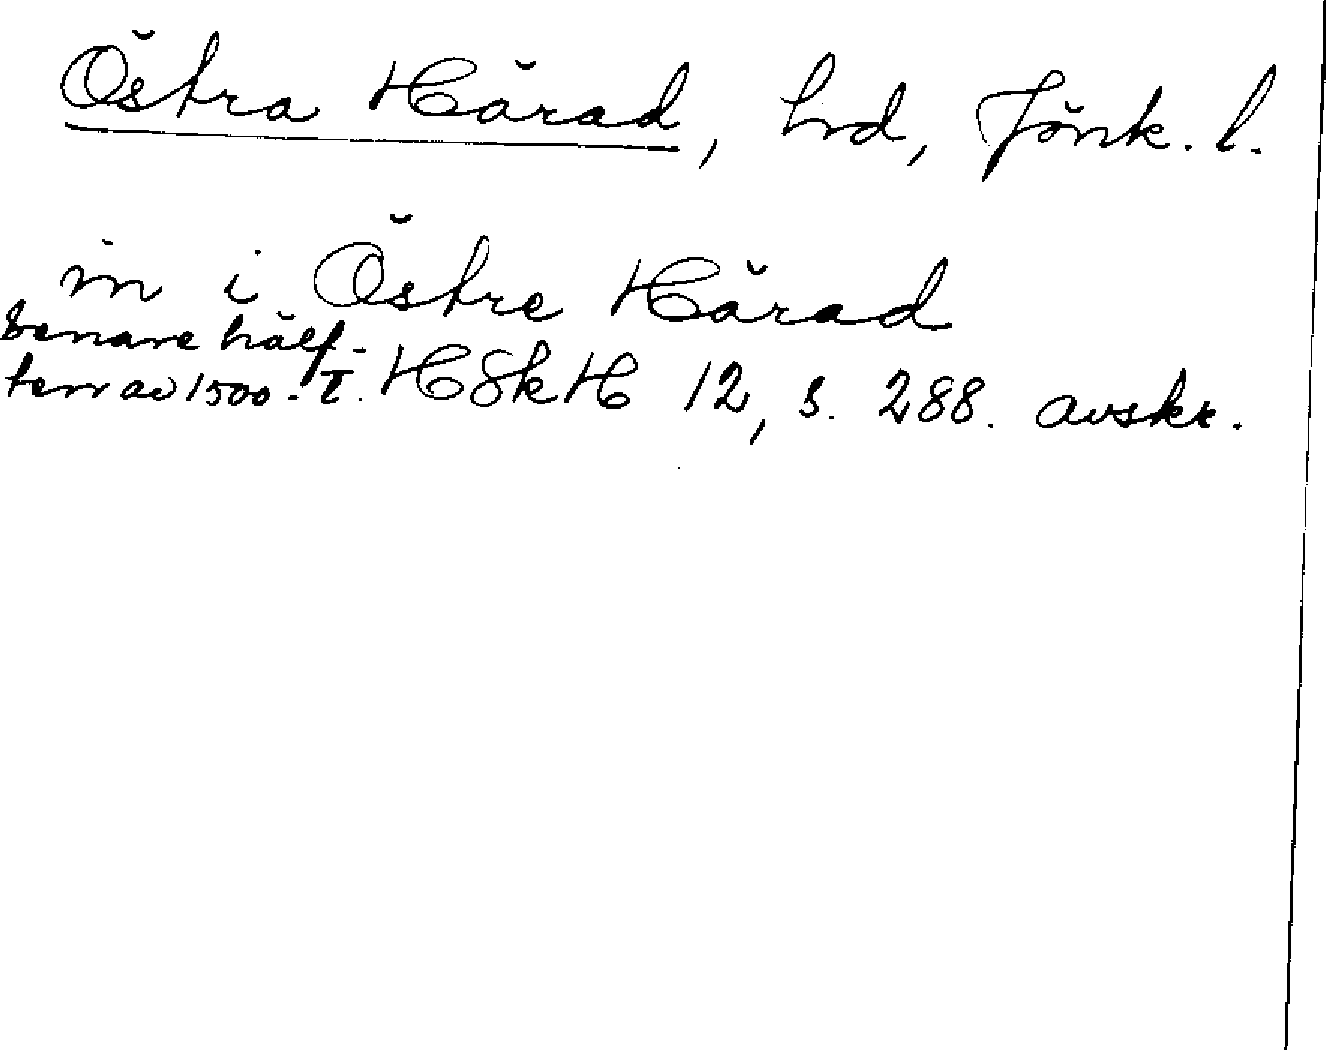 Östra Härad, hrd, Jönk. l.
in i Östre Härad
senare hälf-
ten av 1500-t. HSkH 12, s. 288. avskr.